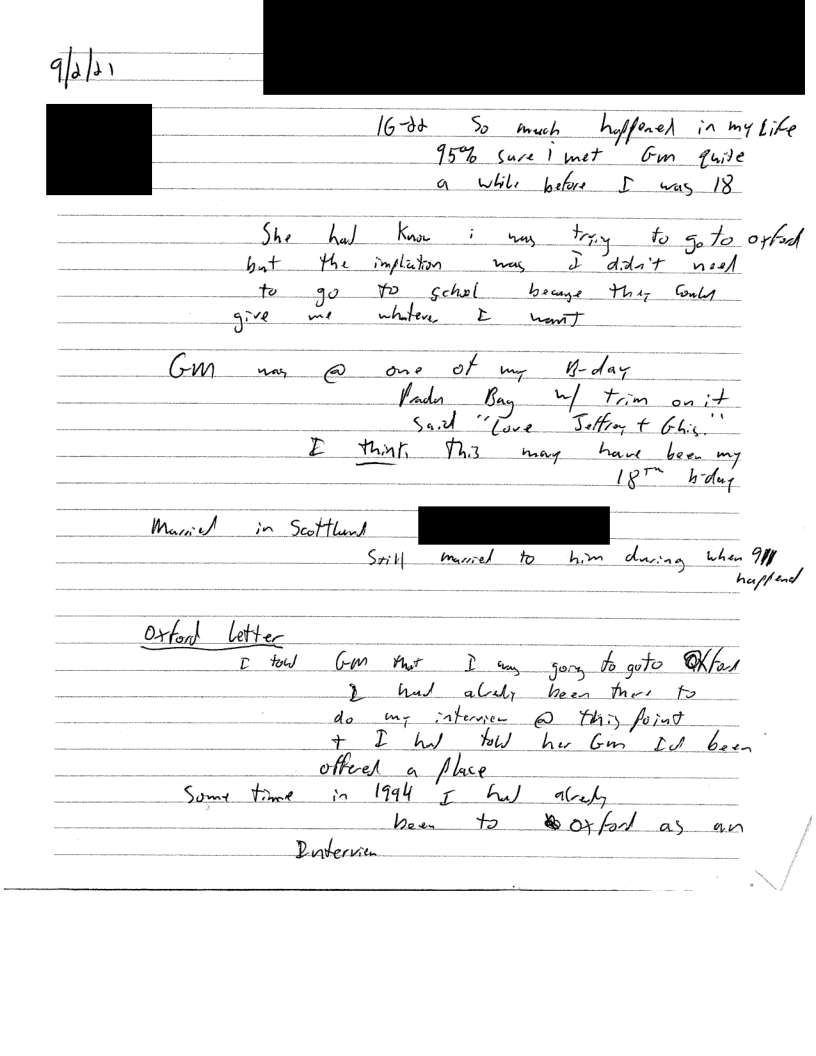 9/2/21
16-22 So much happened in my Life
95% sure i met Gm quite
a while before I was 18
She had know i was trying to go to oxford
but the implication was I didn't need
to go to school because they could
give me whatever I want
GM was @ one of my B-day
Prada Bag w/ trim on it
Said "Love Jeffrey + Ghis."
I think this may have been my
18TH b-day
Married in Scottland
Still married to him during when 911
happend
Oxford Letter
I told GM that I was going to goto Oxford
I had alredy been there to
do my interview @ this point
+ I had told her Gm Id been
offered a place
Some time in 1994 I had alredy
been to oxford as an
Interview